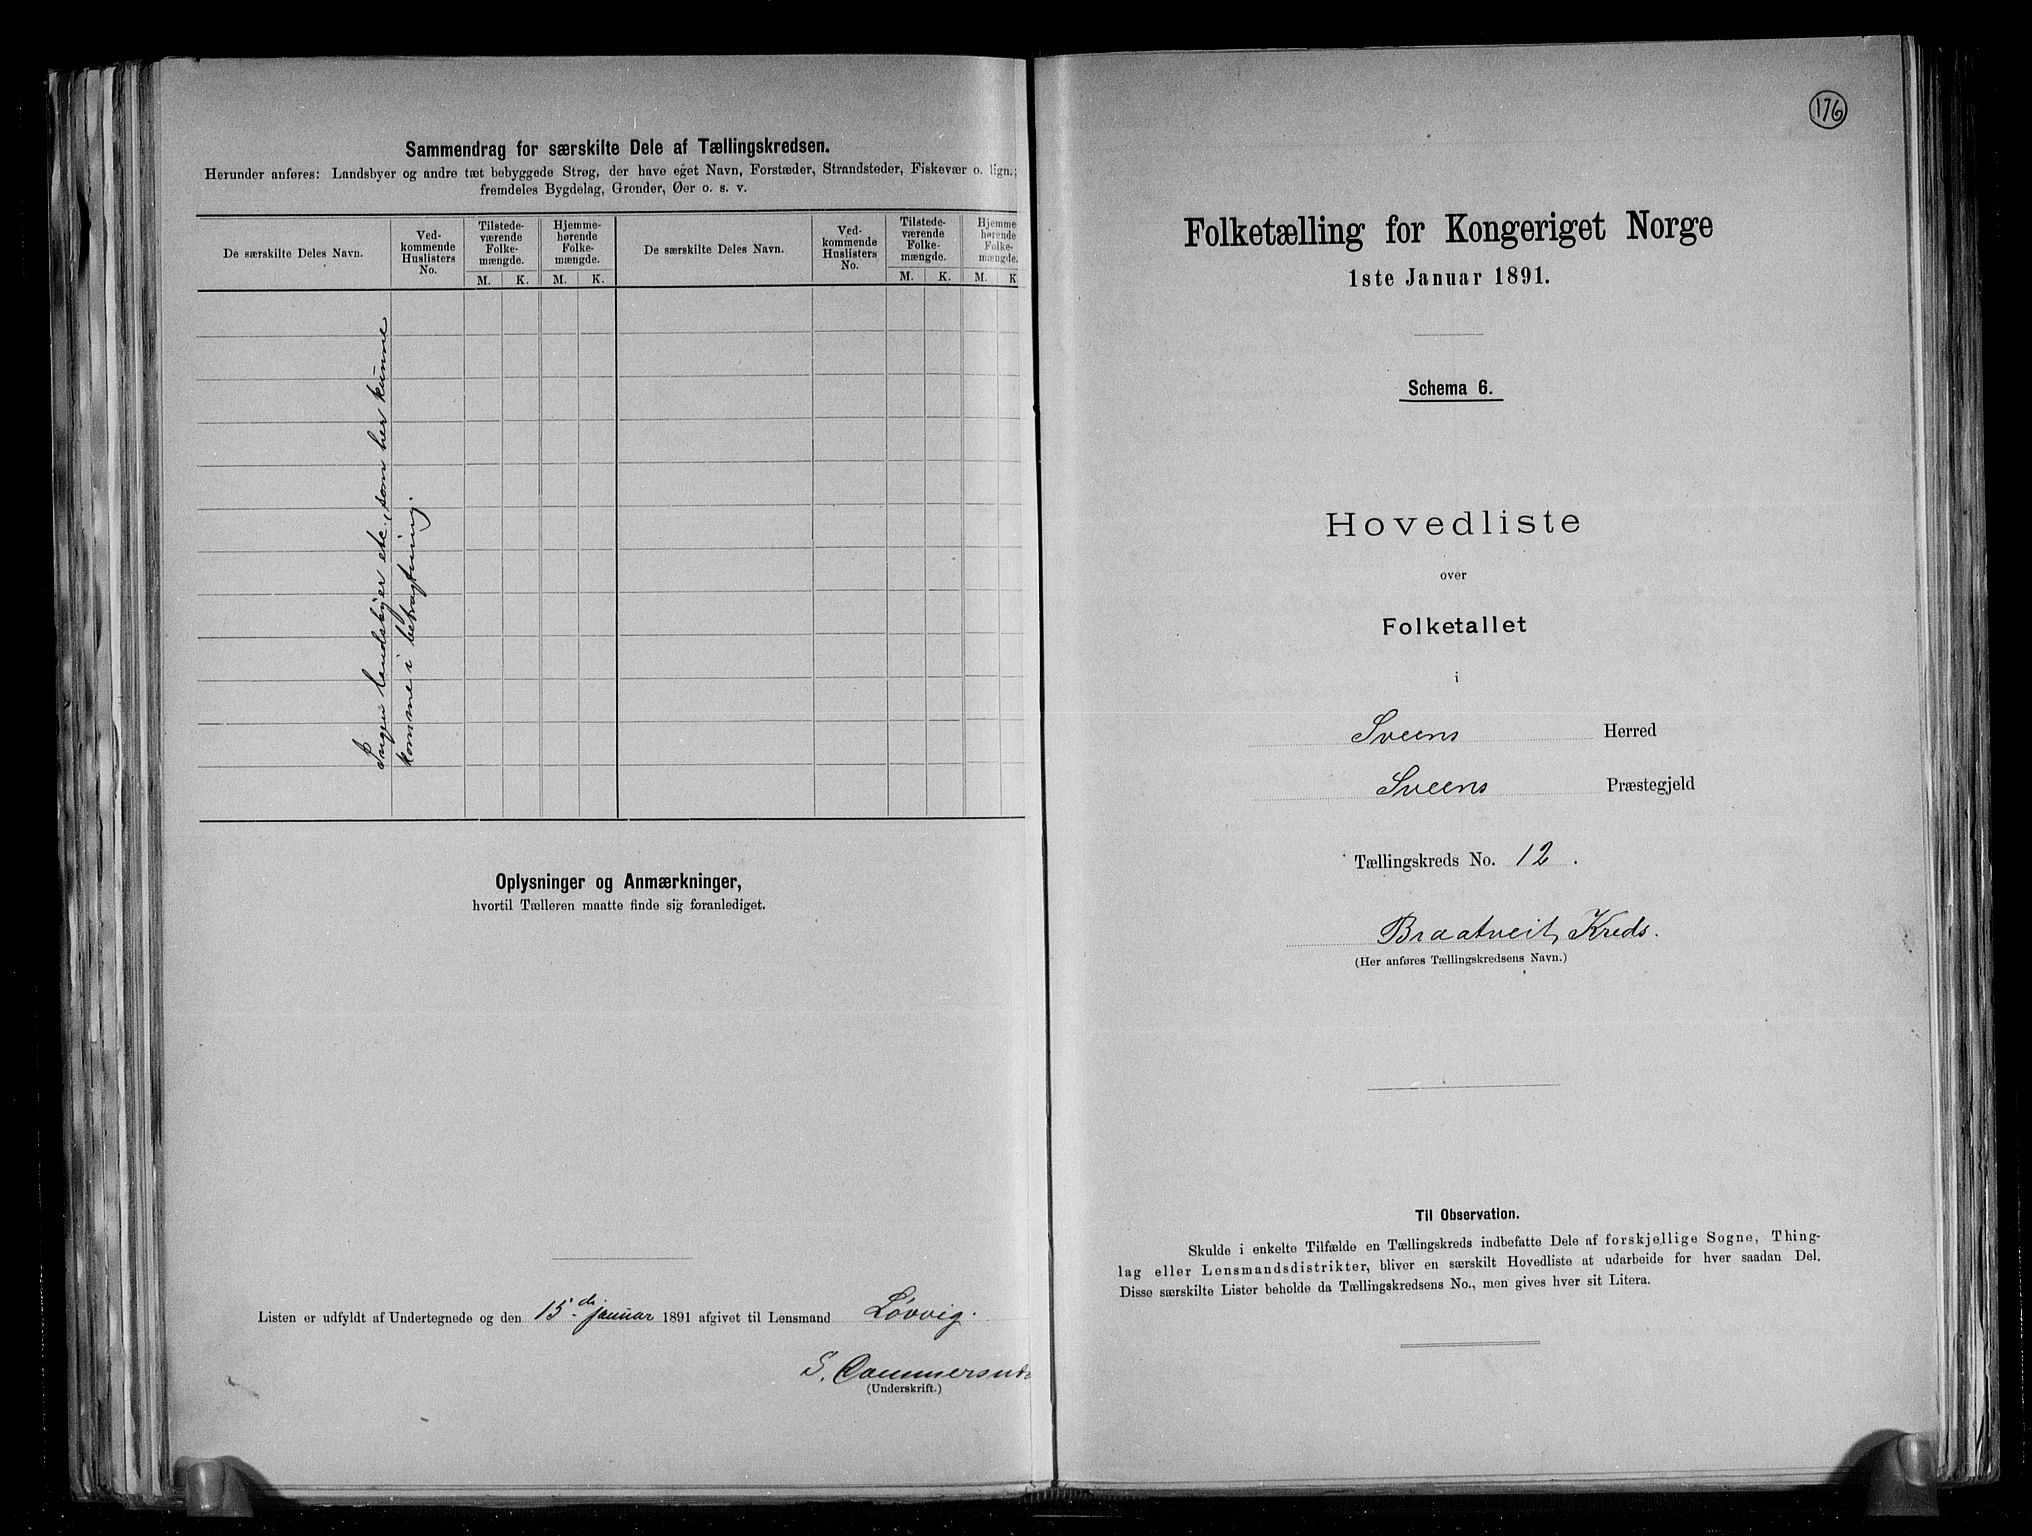 Sammendrag for særskilte Dele af Tællingskredsen.
Herunder anføres: Landsbyer og andre tæt bebyggede Strøg, der have eget Navn, Forstæder, Strandsteder, Fiskevær o. lign.;
fremdeles Bygdelag, Grender, Øer o. s. v.
De særskilte Deles Navn.
Ved-
kommende
Huslisters
No.
Tilstede-
værende
Folke-
mængde.
Hjemme-
hørende
Folke-
mængde.
De særskilte Deles Navn.
Ved-
kommende
Huslisters
No.
Tilstede-
værende
Folke-
mængde.
Hjemme-
hørende
Folke-
mængde.
M. K. M. K. M. K. M. K
Ingen landsbyer etc., som her kunne
komme i betragtning.
Oplysninger og Anmærkninger,
hvortil Tælleren maatte finde sig foranlediget.
Listen er udfyldt af Undertegnede og den 15de januar 1891 afgivet til Lensmand Løvvig.
S.
(Underskrift.)
176
Folketælling for Kongeriget Norge
1ste Januar 1891.
Schema 6.
Hovedliste
over
Folketallet
i
Sveens Herred
Sveens Præstegjeld
Tællingskreds No. 12.
Braatveit Kreds.
(Her anføres Tællingskredsens Navn.)
Til Observation.
Skulde i enkelte Tilfælde en Tællingskreds indbefatte Dele af forskjellige Sogne, Thing-
lag eller Lensmandsdistrikter, bliver en særskilt Hovedliste at udarbeide for hver saadan Del.
Disse særskilte Lister beholde da Tællingskredsens No., men gives hver sit Litera.